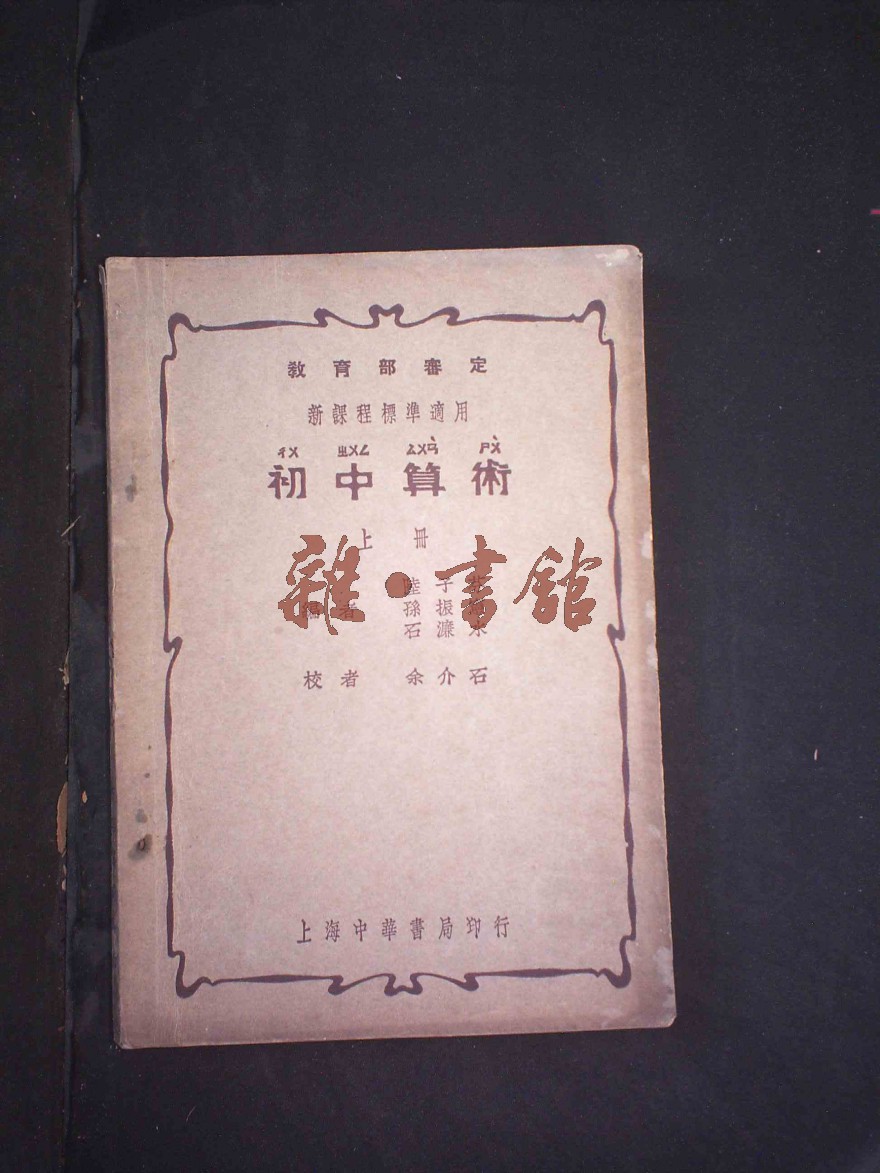 教育部審定
新課程標準適用
ㄔㄨ ㄓㄨㄥ ㄙㄨㄢˋ ㄕㄨˋ
初中算術
上冊
雜·書館
編者
陸子
孫振
石濂水
校者 余介石
上海中華書局印行